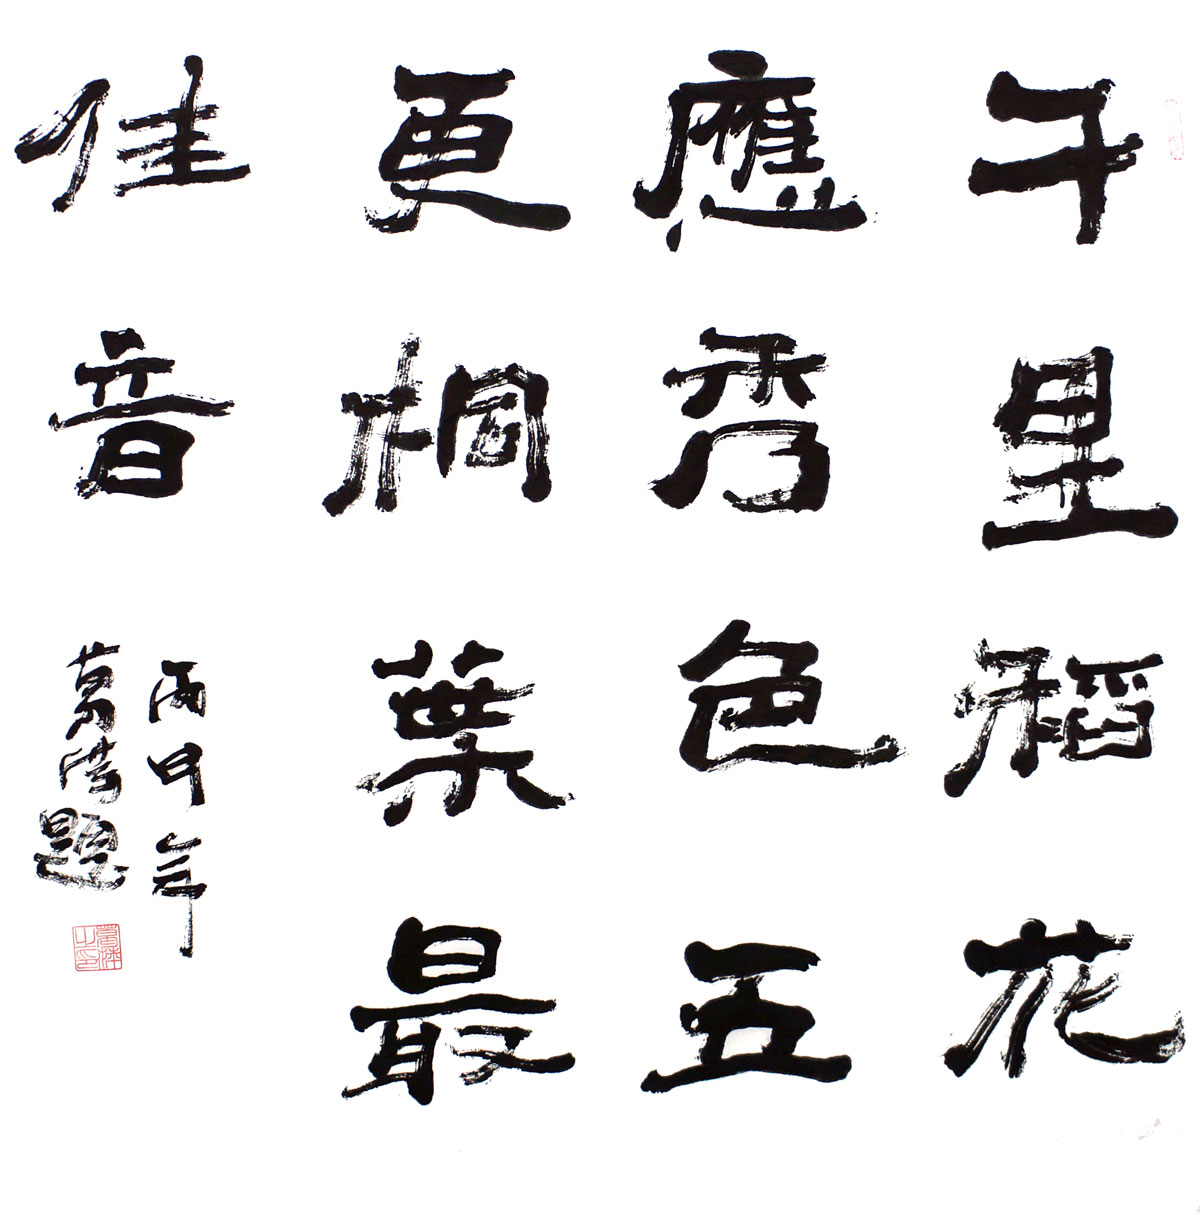 千里稻花
應秀色五
更桐葉最
佳音
丙申年
題